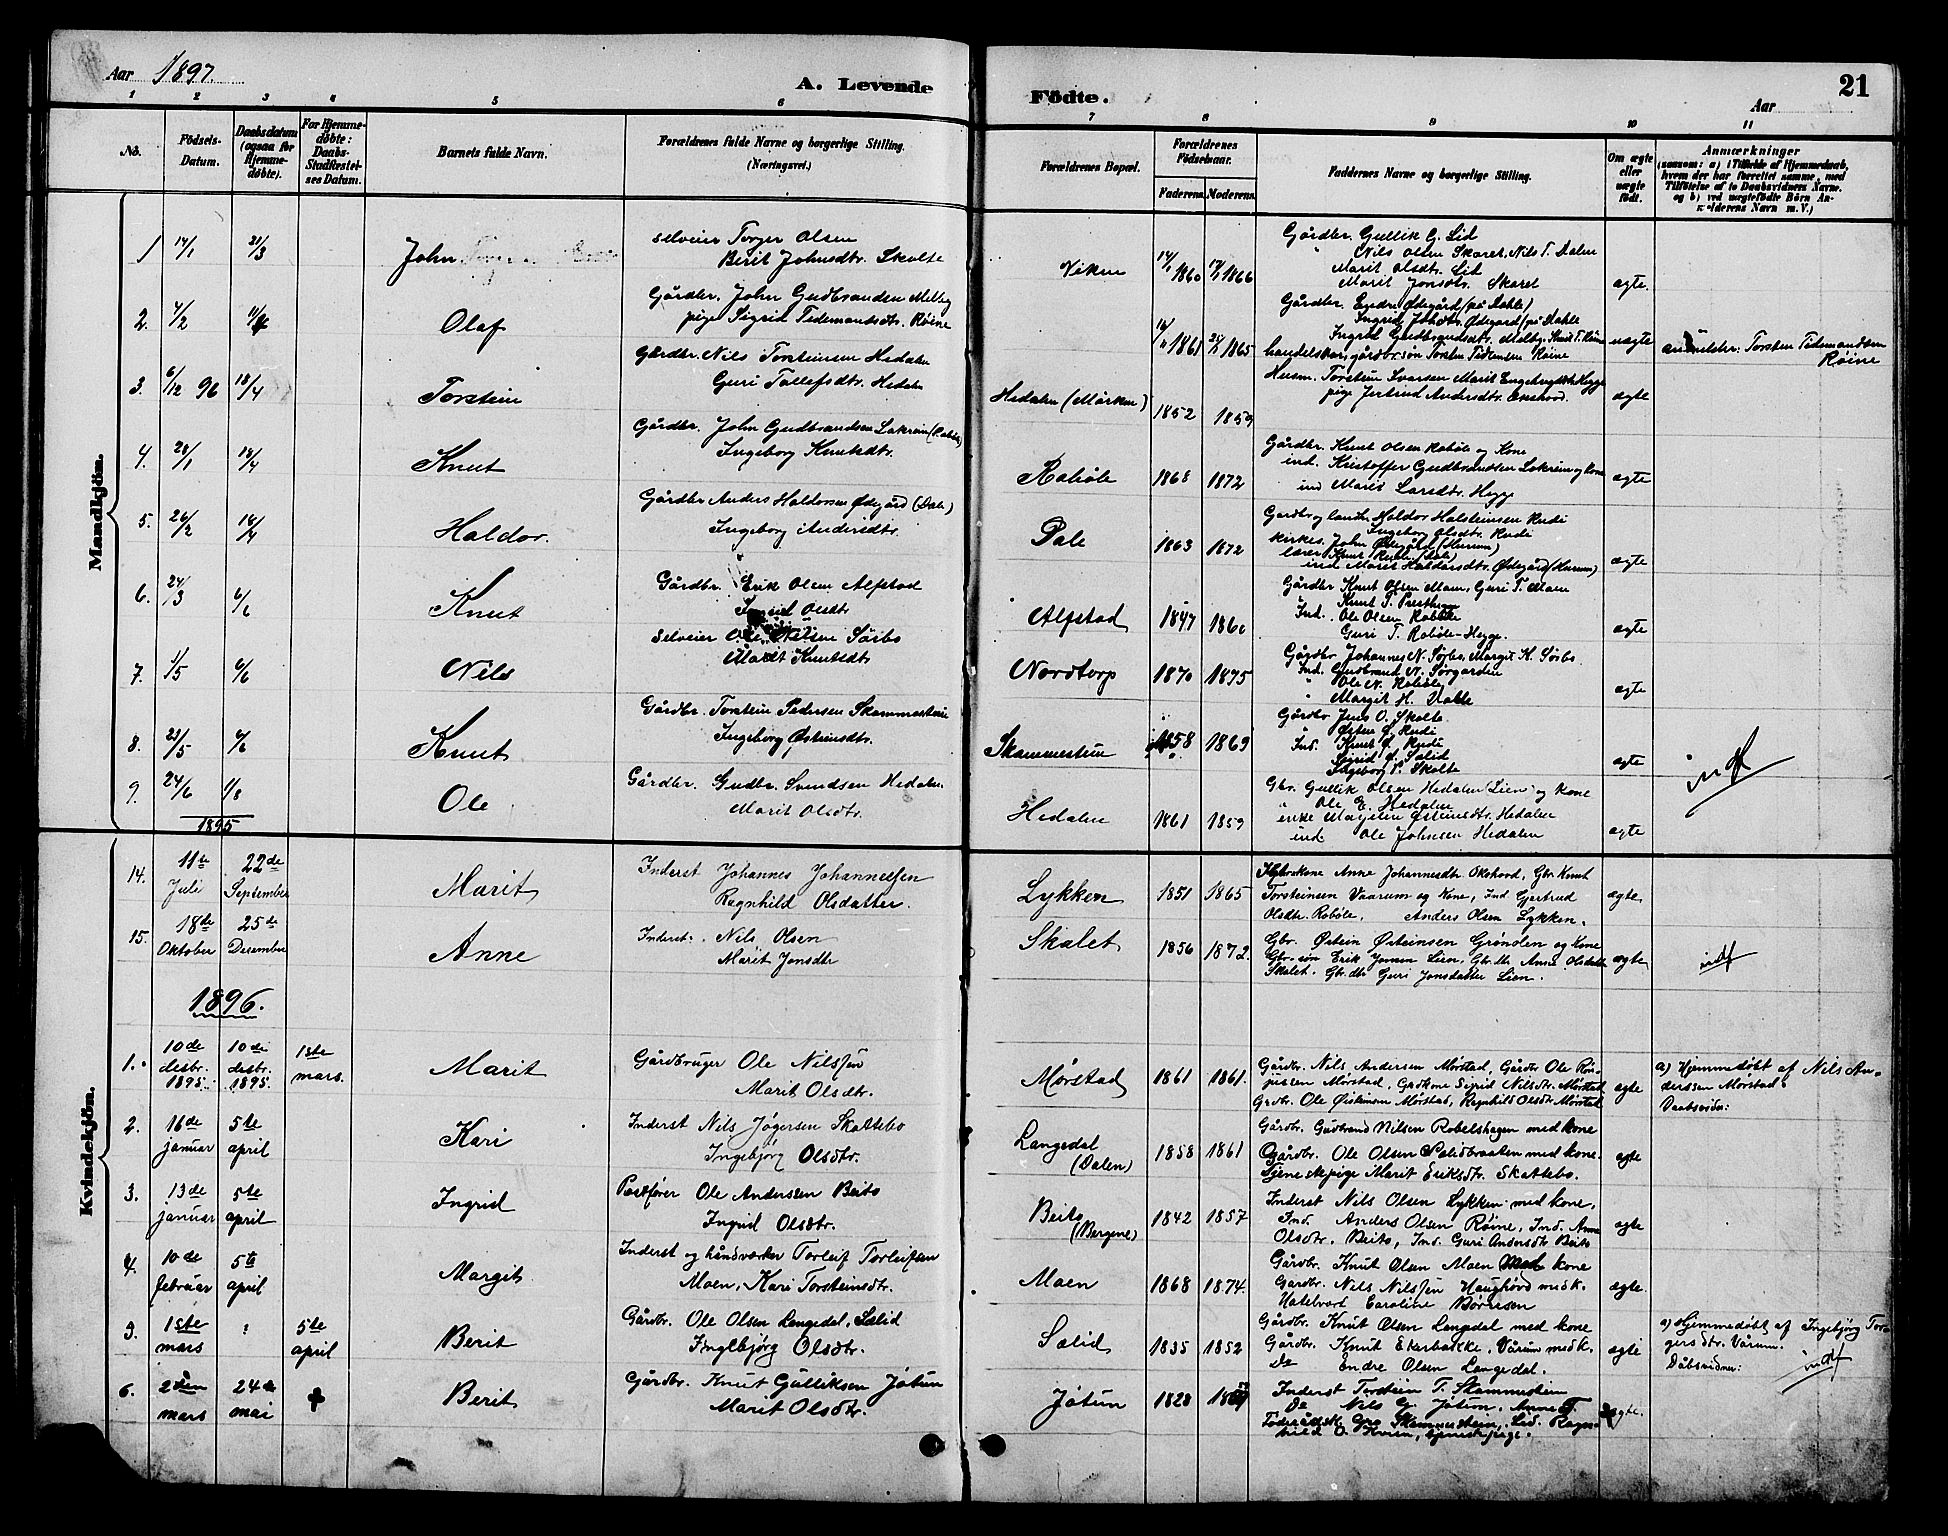 Aar 1897. A. Levende Födte. Aar 21
1 2 3 4 5 6 7 8 9 10 11
No. Födsels-Datum. Daabsdatum (ogsaa for Hjemmedöbte). For Hjemmedöbte: Daabs-Stadfæstelses Datum. Barnets fulde Navn. Forældrenes fulde Navne og borgerlige Stilling. (Næringsvei.) Forældrenes Bopæl. Forældrenes Födselsaar. Faderens. Moderens. Faddernes Navne og borgerlige Stilling. Om ægte eller uægte födt. Anmærkninger
Mandkjön.
1 14/1 21/3 John selveier Torger Olsen
Berit Johnsdtr. Skolte
Viken 1860 1866 Gårdbr. Gullik G. Lid
Nils Olsen Skaret, Nils T. Dalen
Marit Olsdtr. Lid
Marit Jonsdtr. Skaret ægte.
2. 4/2 Olaf Gårdbr. John Gudbrandsen Melby
pige Sigrid Tidemandsdtr. Röine
1861 1865 Gårdbr. Endre Ødegård (på Dahle)
Ingrid Ødegård (på Dahle
Ingrid Gudbrandsdtr. Melby, Knut T. Röine
gårdbr.sön Torsten Tidemsen Röine uægte
anmelder: Torsten Tidemandsen
Röine
3. 6/12 96 18/4 Torstein Gårdbr. Nils Torsteinsen Hedalen
Guri Tollefsdtr. Hedalen
Hedalen (Mörken) 1852 1859 Husm. Torstein Ivarsen Marit Hegge
pige Jertrud Andersdtr. Okshovd. ægte
4. 28/1 18/4 Knut Gårdbr. John Gudbrandsen Lokrein
Ingeborg Knutsdtr.
Roböle 1868 1872 Gårdbr. Knut Olsen Roböle og Kone
ind. Kristoffer Gudbrandsen Lokrein og kone
ind Marit Larsdtr. Hegge ægte
5. 26/2 18/4 Haldor. Gårdbr Anders Haldorsen Ødegård (Dale)
Ingeborg Andersdtr.
Dale 1863 1872 Haldor Halsteinsen Rudi
Ingeborg Olsdtr. Rudi
kirkes. John Ødegård (Hurum)
ind Marit Haldorsdtr. Ødegård (Hurum) ægte
6. 24/3 6/6 Knut Gårdbr. Erik Olsen Alfstad
Olsdtr
Alfstad 1847 1860 Gårdbr Knut Olsen Moen, Guri T. Moen
Knut T. Prestheim
Ind. Ole Olsen Roböle
Guri T. Roböle-Hegge. ægte
7. 1/5 6/6 Nils selveier Ole Nilsen Sörbo
Marit Knutsdtr
Nordtorp 1870 1875 Gårdbr Johannes N. Sörbo, Margit K. Sörbo
Ind. Gudbrand N. Sörgarden
Ole N. Roböle
Margit H. Dahle ægte
8. 23/5 6/6 Knut Gårdbr. Torstein Pedersen Skammestein
Ingeborg Østeinsdtr.
Skammestein 1858 1869 Gårdbr Jens O. Skolte
Østen Ø. Rudi
Ind. Knut Ø. Rudi
Sigrid Ø. Solid
Ingeborg P. Skolte ægte indf
9. 24/6 1/8 Ole Gårdbr. Gudbr. Svendsen Hedalen
Marit Olsdtr.
Hedalen 1861 1859 Gbr. Gullik Olsen Hedalen (Lien) og Kone
Ole E. Hedalen
enke Marjelen Østeinsdtr. Hedalen
ind. Ole Johnsen Hedalen ægte
1895
Kvindekjön.
14. 11te Juli 22de September Marit Inderst Johannes Johannessen
Ragnhild Olsdatter.
Lykken 1851 1865 Anne Johannesdtr Okshovd, Gbr. Knut
Torsteinsen Vaarum og Kone, Ind Gjertrud
Olsdtr. Roböle, Anders Olsen Lykken. ægte,
15. 18de Oktober 25de December Anne Inderst. Nils Olsen
Marit Jonsdtr
Skalet 1856 1872. Gbr. Østein Østeinsen Grönolen og Kone
Gbr. sön Erik Jonsen Lien, Gbr. dtr Anne Olsdatter
Skalet, Gbr. dtr Guri Jonsdatter Lien. ægte indf
1896.
1. 10de desbr. 1895. 10de desbr. 1895. 1ste mars. Marit Gårdbruger Ole Nilssen
Marit Olsdtr.
Mørstad 1861 1861. Gårdbr. Nils Andersen Mørstad, Gårdbr Ole
Mørstad, Grdkone Sigrid Nilsdtr. Mørstad
Grdbr. Ole Østensen Mørstad, Ragnhild Olsdtr Mørstad ægte
a) Hjemmedøbt af Nils An-
derssen Mørstad.
Daabsvidner:
2. 16de januar 5te april Kari Inderst Nils Jøgersen Skattebo
Ingebjørg Olsdtr.
Langedal (Dalen) 1858 1861 Gårdbr. Gudbrand Nilsen Robelshagen med kone
Gårdbr. Ole Olsen Solidbraaten med kone.
Tjenestepige Marit Eriksdtr. Skattebo. ægte
3. 13de januar 5te april Ingrid Postfører Ole Andersen Beito
Ingrid Olsdtr.
Beito (Bergene) 1842 1857 Inderst Nils Olsen Lykken med kone,
Ind. Anders Olsen Røine, Ind. Anne
Olsdtr. Beito, Ind. Guri Andersdtr Beito ægte
4. 10de februar 5te april Margit Inderst og håndværker Torleif Torleifsen
Moen, Kari Torsteinsdtr.
Moen 1868 1874. Gårdbr. Knut Olsen Moen med kone
Gårdbr. Nils Nilssen Haughövd med k.
Caroline Børresen ægte.
5. 1ste mars 5te april Berit Gårdbr. Ole Olsen Langedal, Solid
Ingebjørg Olsdtr.
Solid 1835 1852 Gårdbr. Knut Olsen Langedal med kone
Gårdbr. Knut Ekerbakke, Vårum med k.
Do Endre Olsen Langedal. ægte
a) Hjemmedøbt af Ingebjørg Tor-
gersdtr. Vårum.
Dåbsvidner: indf
6. mars 24de mai Berit Gårdbr. Knut Gulliksen Jøtun
Marit Olsdtr.
Jøtun 1828 Inderst Torstein T. Skammestein
Do Nils G. Jøtun, Anne T.
Föderådsk. Gro Skammestein, Ragn-
hild O. tjenestepige. ægte.